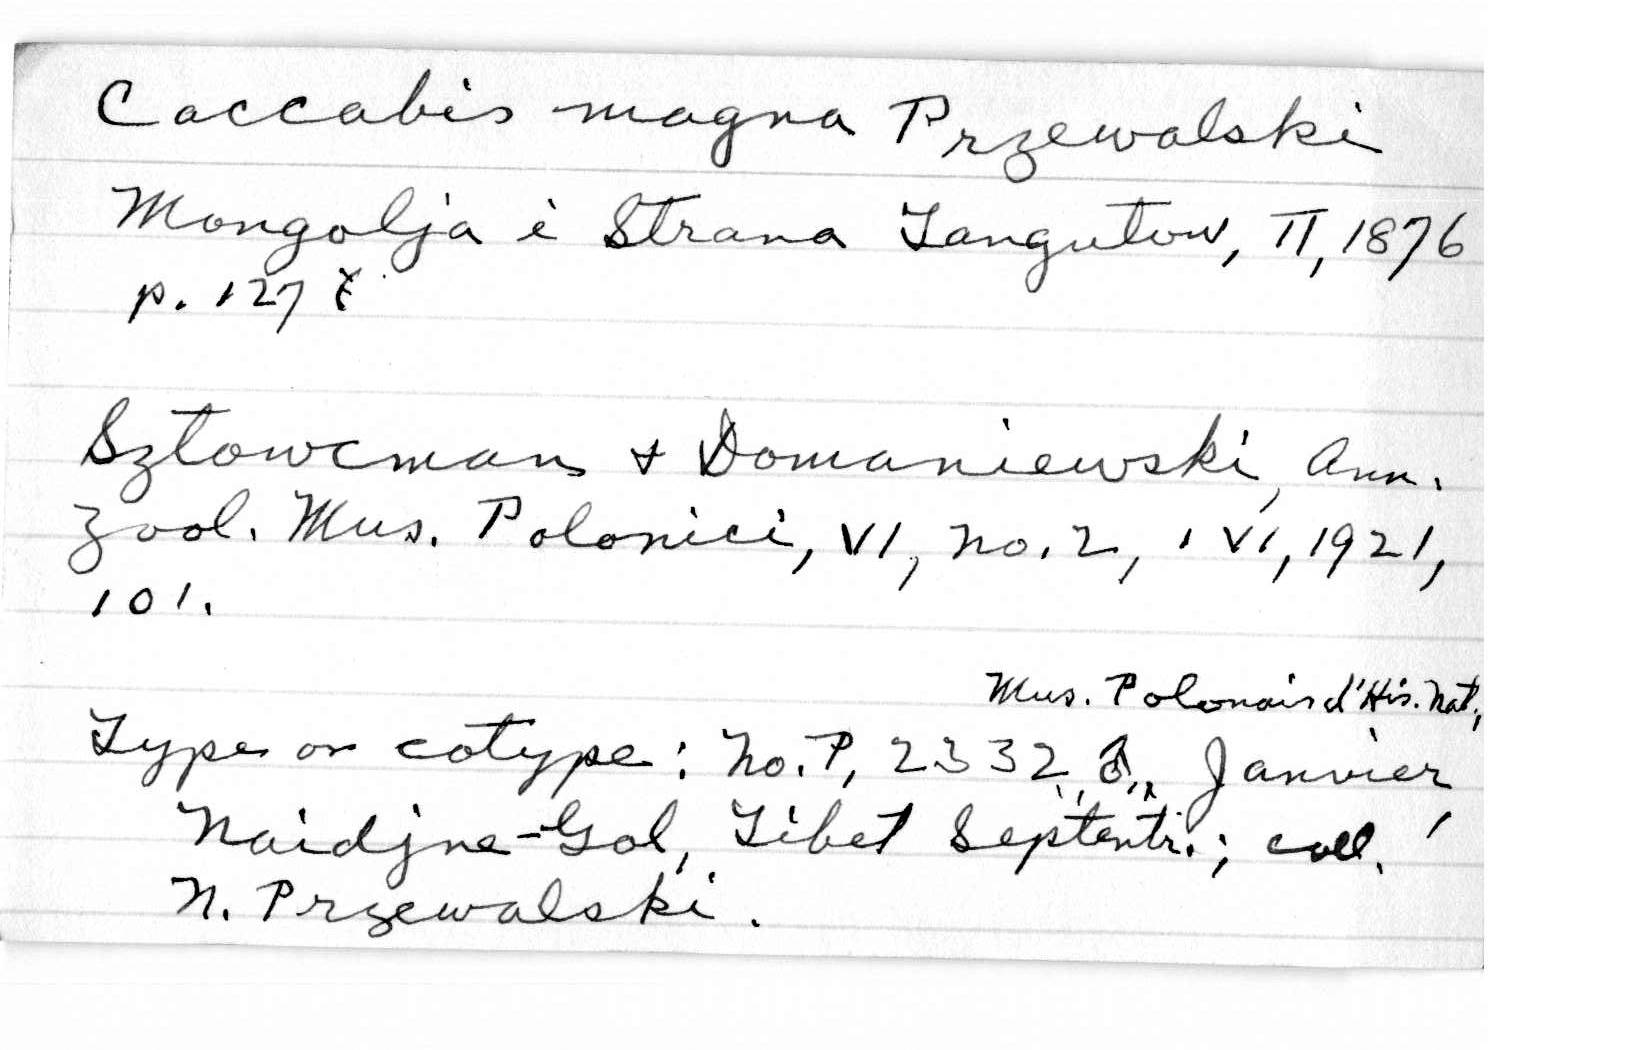 Caccabis magna Przewalski
Mongolja i Strana Tangutow, II, 1876
p. 127
Sztowcman & Domaniewski, Ann.
Zool. Mus. Polonici, VI, no. 2, 1 VI, 1921,
101.
Mus. Polonais d'His. Nat.,
Type or cotype: No. P, 2332, ♂, Janvier,
Naidjne-Gol, Tibet Septentr.; coll.
N. Przewalski.